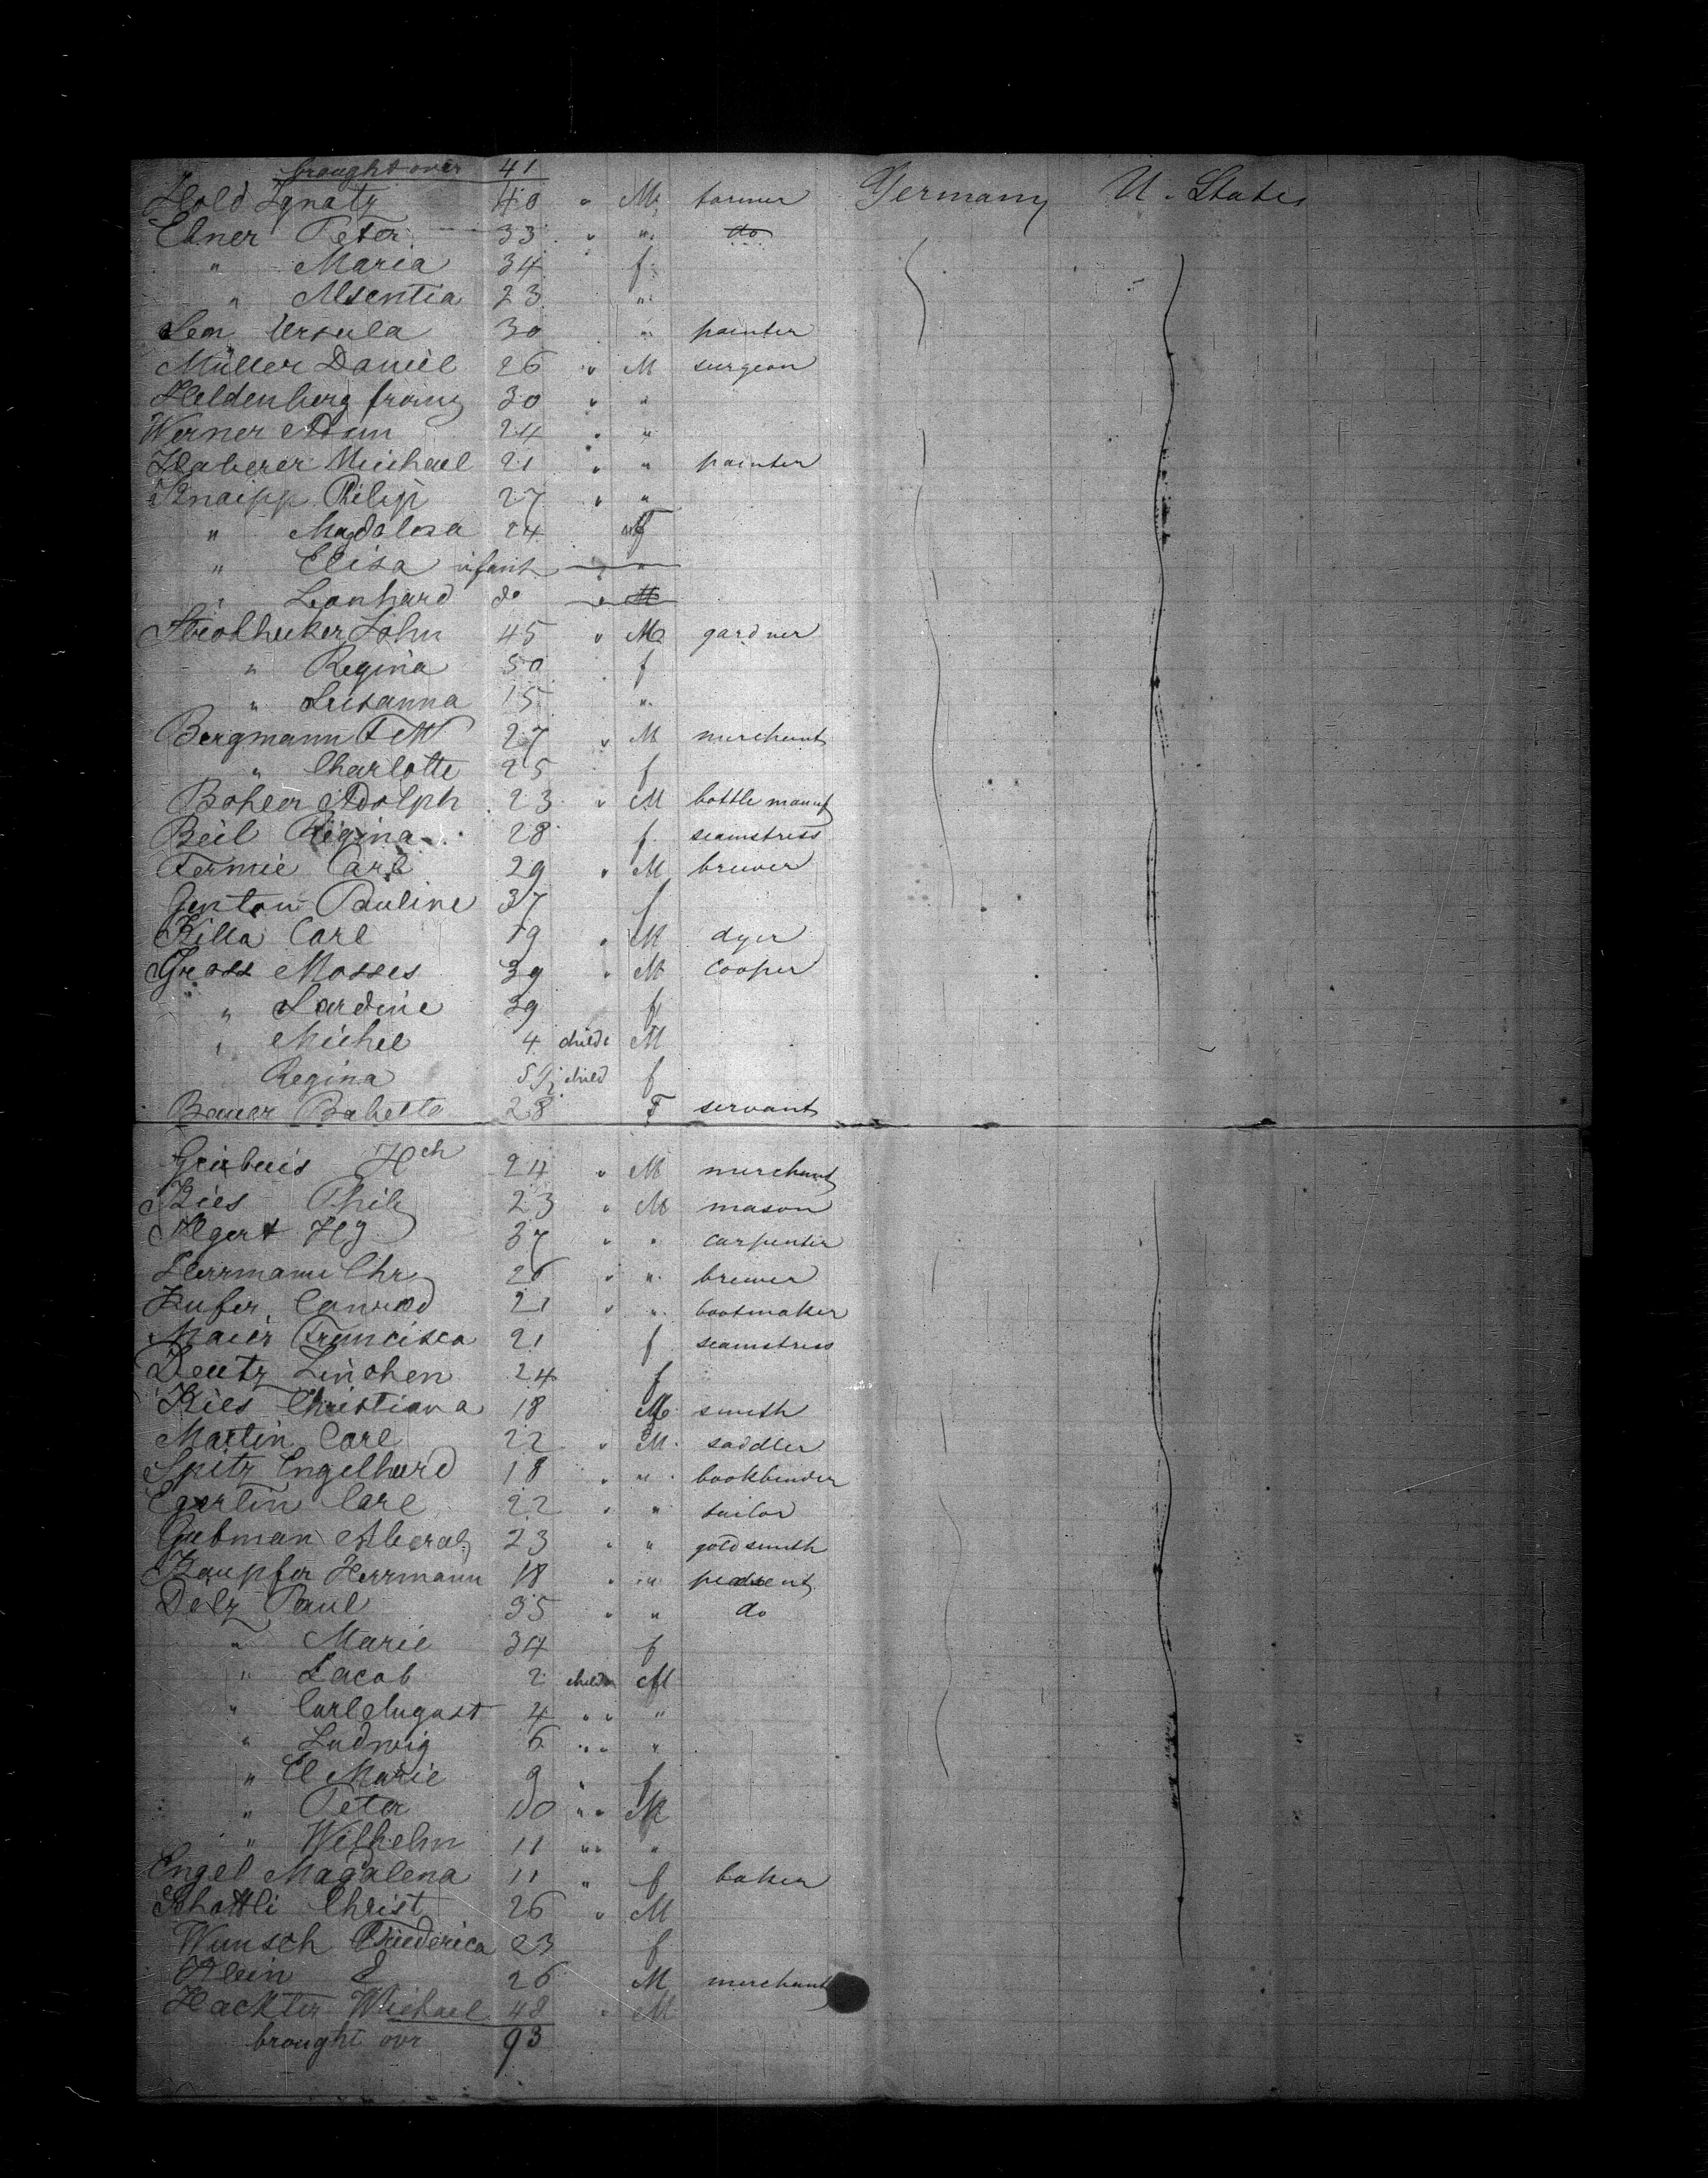 brought over 41
Hold Ignatz 40 " M farmer Germany U. States
Ebner Peter 33 " " do
" Maria 34 f
" Absentia 23 "
Lem Ursula 30 " painter
Müller Daniel 26 " M surgeon
Heldenberg franz 30 " "
Werner Adam 24 " "
Haberer Michael 21 " " painter
Knaipp Philip 27 " "
" Magdalena 24 f
" Elisa infant " "
" Leonhard do " M
John 45 " M gardner
" Regina 50 f
" Susanna 15 "
Bergmann F W 27 " M merchant
" Charlotte 25 f
Bohler Adolph 23 " M bottle manuf
Beil Regina 28 f seamstress
Fermie Carl 29 " M brewer
Genton Pauline 37 f
Killa Carl 19 " M dyer
Gross Mosses 39 " M cooper
" Sardine 39 f
" Michel 4 child M
Regina child f
Bauer Babette 28 F servant
Hch 24 " M merchant
Kies Phil 23 " M mason
Algert HJ 37 " " carpenter
Herrmann Chr 26 " " brewer
Kufer Conrad 21 " " bootmaker
Maier Francisca 21 f seamstress
Deutz Linchen 24 f
Kies Christiana 18 M smith
Martin Carl 22 " M saddler
Spitz Engelhard 18 " " bookbinder
Egertin Carl 22 " " tailor
Gutman 23 " " goldsmith
Kaupfer Herrmann 18 " " peasent
Delz Paul 35 " " do
" Marie 34 f
" Jacob 2 child M
" Carl August 4 " " "
" Ludwig 6 " " "
" El Marie 9 " f
" Peter 10 " " M
" Wilhelm 11 " " "
Engel Magdalena 11 " f baker
Schattli Christ 26 " M
Wunsch Friederica 23 f
Klein 26 M merchant
Hackter Michael 48 " M
brought ovr 93